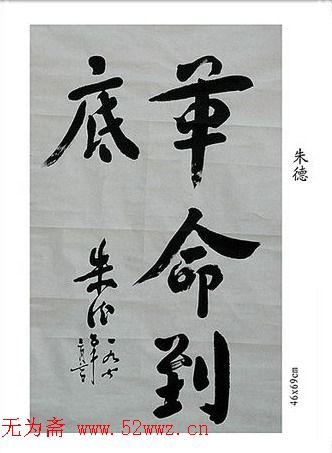 革命到
底
朱德
一九七
五年
三月六日
朱德
46x69cm
无为斋 www.52wwz.cn